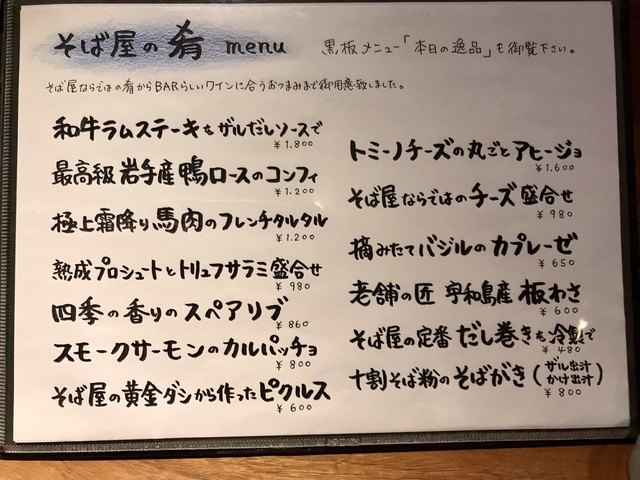 そば屋の肴 menu
黒板メニュー「本日の逸品」も御覧下さい。
そば屋ならではの肴からBARらしいワインに合うおつまみまで御用意致しました。
和牛ラムステーキをザルだしソースで
¥1,800
最高級岩手産鴨ロースのコンフィ
¥1,200
極上霜降り馬肉のフレンチタルタル
¥1,200
熟成プロシュートとトリュフサラミ盛合せ
¥980
四季の香りのスペアリブ
¥860
スモークサーモンのカルパッチョ
¥800
そば屋の黄金ダシから作ったピクルス
¥600
トミーノチーズの丸ごとアヒージョ
¥1,600
そば屋ならではのチーズ盛合せ
¥980
摘みたてバジルのカプレーゼ
¥650
老舗の匠 宇和島産 板わさ
¥600
そば屋の定番 だし巻きを冷製で
¥480
十割そば粉のそばがき(ザル出汁 かけ出汁)
¥800